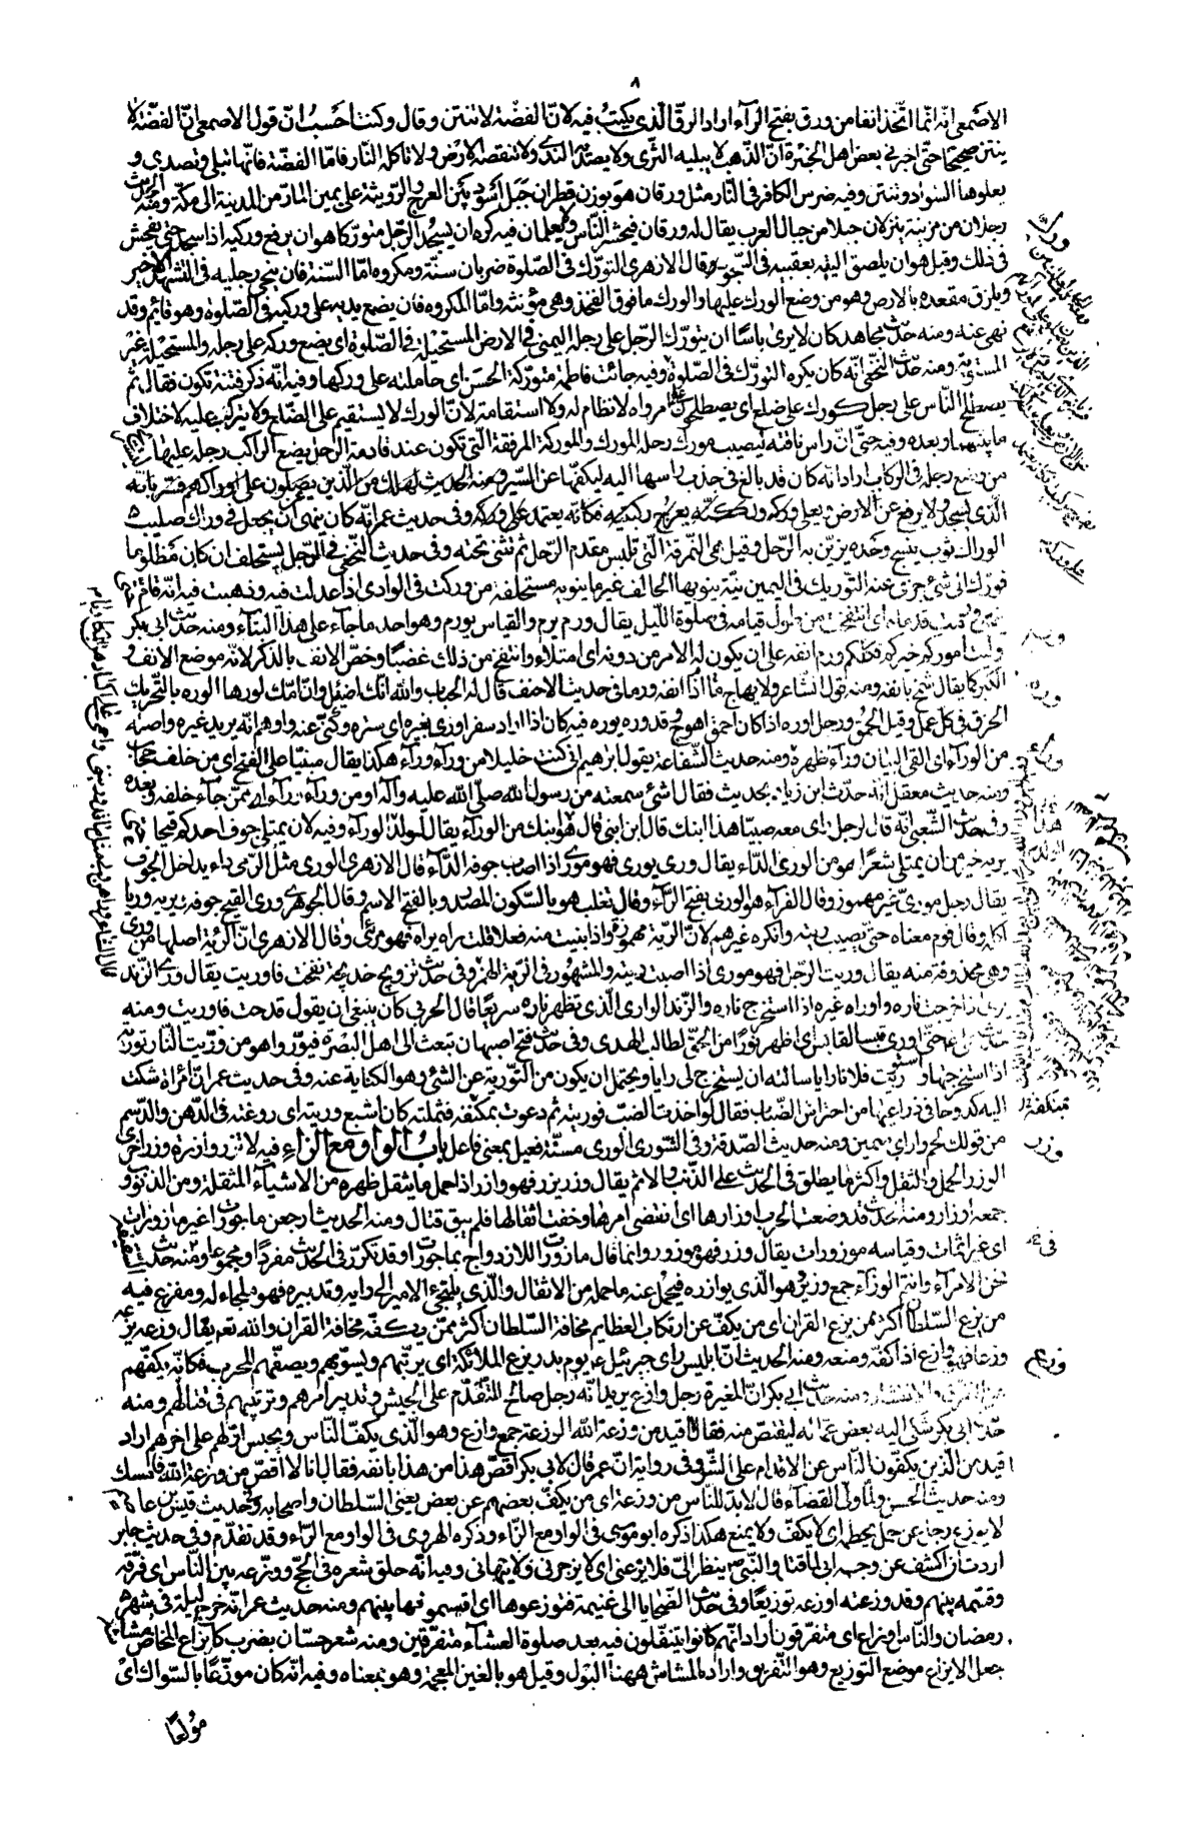 ٨
الاصمعى انه انما اتخذ انفا من ورق بفتح الرآء اراد الرق الذى يكتب فيه لان الفضة لا تنتن وقال وكنت احسب ان قول الاصمعى ان الفضة لا
ينتن صحيحا حتى اخبرنى بعض اهل الخبرة ان الذهب لا يبليه الثرى ولا يصدئه الندى ولا تنقصه الارض ولا تاكله النار فاما الفضة فانها تبلى وتصدى و
يعلوها السواد وتنتن وفيه ضرس الكافر فى النار مثل ورقان هو بوزن قطران جبل اسود بين العرج والرويثة على يمين المار من المدينة الى مكة ومنه الحديث
رجلان من مزينة ينزلان جبلا من جبال العرب يقال له ورقان فيحشر الناس ولا يعلمان فيه كره ان يسجد الرجل متوركا هو ان يرفع وركيه اذا سجد حتى يفحش
فى ذلك وقيل هو ان يلصق اليتيه بعقبيه فى السجود وقال الازهرى التورك فى الصلوة ضربان سنة ومكروه اما السنة فان ينحى رجليه فى التشهد الاخير
ويلزق مقعده بالارض وهو من وضع الورك عليها والورك ما فوق الفخذ وهى مؤنثة واما المكروه فان يضع يديه على وركيه فى الصلوة وهو قائم وقد
نهى عنه ومنه حديث مجاهد كان لا يرى باسا ان يتورك الرجل على رجله اليمنى فى الارض المستحيلة فى الصلوة اى يضع وركه على رجله والمستحيلة غير
المستوية ومنه حديث النخعى انه كان يكره التورك فى الصلوة وفيه جائت فاطمة متوركة الحسن اى حاملته على وركها وفيه انه ذكر فتنة تكون فقال ثم
يصطلح الناس على رجل كورك على ضلع اى يصطلحون على امر واه لا نظام له ولا استقامة لان الورك لا يستقيم على الضلع ولا يتركب عليه لاختلاف
ما بينهما وبعده وفيه حتى ان راس ناقته ليصيب مورك رحله المورك والموركة المرفقة التى تكون عند قادمة الرحل يضع الراكب رجله عليها ليستريح
من وضع رجله فى الركاب اراد انه كان قد بالغ فى جذب راسها اليه ليكفها عن السير ومنه الحديث لعلك من الذين يصلون على اوراكهم فسر بانه
الذى يسجد ولا يرفع عن الارض ويعلى وركه ولكنه يفرج ركبتيه فكانه يعتمد على وركه وفى حديث عمر انه كان ينهى ان يجعل فى وراك صليب
الوراك ثوب ينسج وحده يزين به الرحل وقيل هى النمرقة التى تلبس مقدم الرحل ثم تثنى تحته وفى حديث النخعى فى الرجل يستحلف ان كان مظلوما
فورك الى شئ جزى عنه التوريك فى اليمين نية ينويها الحالف غير ما ينويه مستحلفه من وركت فى الوادى اذا عدلت فيه وذهبت فيه انه قام حتى
تورمت قدماه اى انتفخت من طول قيامه فى صلوة الليل يقال ورم يرم والقياس يورم وهو احد ما جآء على هذا البنآء ومنه حديث ابى بكر
وليت اموركم خيركم فكلكم ورم انفه على ان يكون له الامر من دونه اى امتلاء وانتفخ من ذلك غضبا وخص الانف بالذكر لانه موضع الانف و
الكبر كما يقال شمخ بانفه ومنه قول الشاعر ولا يهاج اذا ما انفه ورما فى حديث الاحنف قال له الحباب والله انك لضئيل وان امك لورها الوره بالتحريك
الخرق فى كل عمل وقيل الحمق ورجل اوره اذا كان احمق اهوج وقد وره يوره فيه كان اذا اراد سفرا ورى بغيره اى ستره وكنى عنه واوهم انه يريد غيره واصله
من الورآء اى القى البيان ورآء ظهره ومنه حديث الشفاعة يقول ابرهيم انى كنت خليلا من ورآء ورآء هكذا يقال مبنيا على الفتح اى من خلف حجاب
ومنه حديث معقل انه حدث ابن زياد بحديث فقال اشئ سمعته من رسول الله صلى الله عليه وآله او من ورآء ورآء اى ممن جآء خلفه وبعده
وفى حديث الشعبى انه قال لرجل راى معه صبيا هذا ابنك قال ابن ابنى قال هو ابنك من الورآء يقال لولد الولد الورآء وفيه لان يمتلى جوف احدكم قيحا حتى
يريه خير من ان يمتلى شعرا هو من الورى الدآء يقال ورى يورى فهو مورى اذا اصاب جوفه الدآء قال الازهرى الورى مثل الرمى داء يداخل الجوف
يقال رجل مورى غير مهموز وقال الفرآء هو الورى بفتح الرآء وقال ثعلب هو بالسكون المصدر وبالفتح الاسم وقال الجوهرى ورى القيح جوفه يريه وريا
اكله وقال قوم معناه حتى يصيب ريته وانكره غيرهم لان الرية مهموزة واذا بنيت منه فعلا قلت راه يراه فهو مرئى وقال الازهرى ان الرئة اصلها من ورى
وهى محذوفة منه يقال وريت الرجل فهو مورى اذا اصبت ريته والمشهور فى الرية الهمز وفى حديث تزويج خديجة نفخت فاوريت يقال ورى الزند
يرى اذا خرجت ناره واوراه غيره اذا استخرج ناره والزند الوارى الذى تظهر ناره سريعا قال الحربى كان ينبغى ان يقول قدحت فاوريت ومنه
حديث على حتى اورى قبسا لقابس اى اظهر نورا من الحق لطالب الهدى وفى حديث فتح اصبهان تبعث الى اهل البصرة فيوروا هو من وريت النار تورية
اذا استخرجتها واستوريت فلانا رايا سالته ان يستخرج لى رايا ويحتمل ان يكون من التورية عن الشئ وهو الكناية عنه وفى حديث عمر ان امراة شكت
اليه كدوحا فى ذراعيها من احتراش الضباب فقال لو اخذت الضب فوريته ثم دعوت بمكتفه فثملته كان اشبع وريته اى روغته فى الدهن والدسم
من قولك لحم وار اى سمين ومنه حديث الصدقة وفى الشوى الورى مسنة فعيل بمعنى فاعل باب الواو مع الزاء فيه لا تزر وازرة وزر اخرى
الوزر الحمل والثقل واكثر ما يطلق فى الحديث على الذنب والاثم يقال وزر يزر فهو وازر اذا حمل ما يثقل ظهره من الاشيآء المثقلة ومن الذنوب و
جمعه اوزار ومنه الحديث قد وضعت الحرب اوزارها اى انقضى امرها وخفت اثقالها فلم يبق قتال ومنه الحديث ارجعن ماجورات غير مازورات
اى غير اثمات وقياسه موزورات يقال وزر فهو موزور وانما قال مازورات للازدواج بماجورات وقد تكرر فى الحديث مفردا ومجموعا ومنه حديث السقيفة
نحن الامرآء وانتم الوزرآء جمع وزير وهو الذى يوازره فيحمل عنه ما حمله من الاثقال والذى يلتجئ الامير الى رايه وتدبيره فهو ملجاء له ومفزع فيه
من يزع السلطان اكثر ممن يزع القرآن اى من يكف عن ارتكاب العظايم مخافة السلطان اكثر ممن يكفه مخافة القرآن والله تعالى يقال وزعه يزعه
وزعا فهو وازع اذا كفه ومنعه ومنه الحديث ان ابليس راى جبرئيل يوم بدر يزع الملائكة اى يرتبهم ويسويهم ويصفهم للحرب فكانه يكفهم
عن التفرق والانتشار ومنه حديث ابى بكر ان المغيرة رجل وازع يريد انه رجل صالح للتقدم على الجيش وتدبير امرهم وترتيبهم فى قتالهم ومنه
حديث ابى بكر شكى اليه بعض عماله ليقتص منه فقال انا اقيد من وزعة الله الوزعة جمع وازع وهو الذى يكف الناس ويحبس اولهم على اخرهم اراد
اقيد من الذين يكفون الناس عن الاقدام على الشر وفى رواية ان عمر قال لابى بكر اقص هذا من هذا بانفه فقال انا لا اقص من وزعة الله فامسك
ومنه حديث الحسن لما ولى القضآء قال لابد للناس من وزعة اى من يكف بعضهم عن بعض يعنى السلطان واصحابه وفى حديث قيس بن عاصم
لا يوزع رجل عن جمل يخطمه اى لا يكف ولا يمنع هكذا ذكره ابو موسى فى الواو مع الزآء وذكره الهروى فى الواو مع الرآء وقد تقدم وفى حديث جابر
اردت ان اكشف عن وجه ابى لما قتل والنبى ص ينظر الى فلا يزعنى اى لا يزجرنى ولا ينهانى وفيه انه حلق شعره فى الحج ووزعه بين الناس اى فرقه
وقسمه بينهم وقد وزعته اوزعه توزيعا وفى حديث الضحايا الى غنيمة فتوزعوها اى اقتسموها بينهم ومنه حديث عمر انه خرج ليلة فى شهر
رمضان والناس اوزاع اى متفرقون اراد انهم كانوا يتنفلون فيه بعد صلوة العشآء متفرقين ومنه شعر حسان بضرب كايزاع المخاض مشاشه
جعل الايزاع موضع التوزيع وهو التفريق واراد بالمشاش ههنا البول وقيل هو بالغين المعجمة وهو بمعناه وفيه انه كان موزعا بالسواك اى
مولعا
ورك
ورم
وره
ورا
وزر
وزع